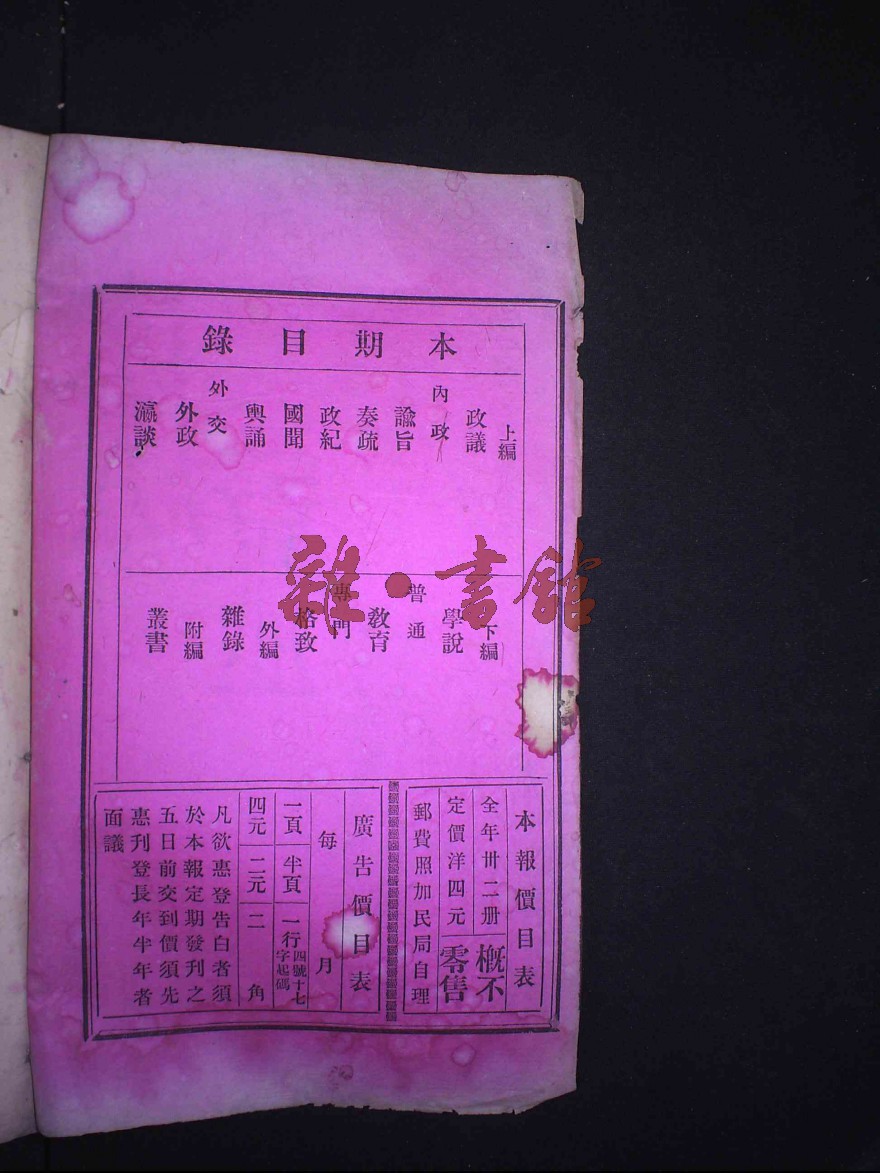 本期目錄
上編
政議
內政
諭旨
奏疏
政紀
國聞
輿誦
外交
外政
瀛談
下編
學說
普通
教育
專門
格致
外編
雜錄
附編
叢書
本報價目表
全年卅二册
定價洋四元
概不零售
郵費照加民局自理
廣告價目表
每月
一頁 半頁 一行四號十七字起碼
四元 二元 二角
凡欲惠登告白者須
於本報定期發刊之
五日前交到價須先
惠刋登長年半年者
面議
雜·書館